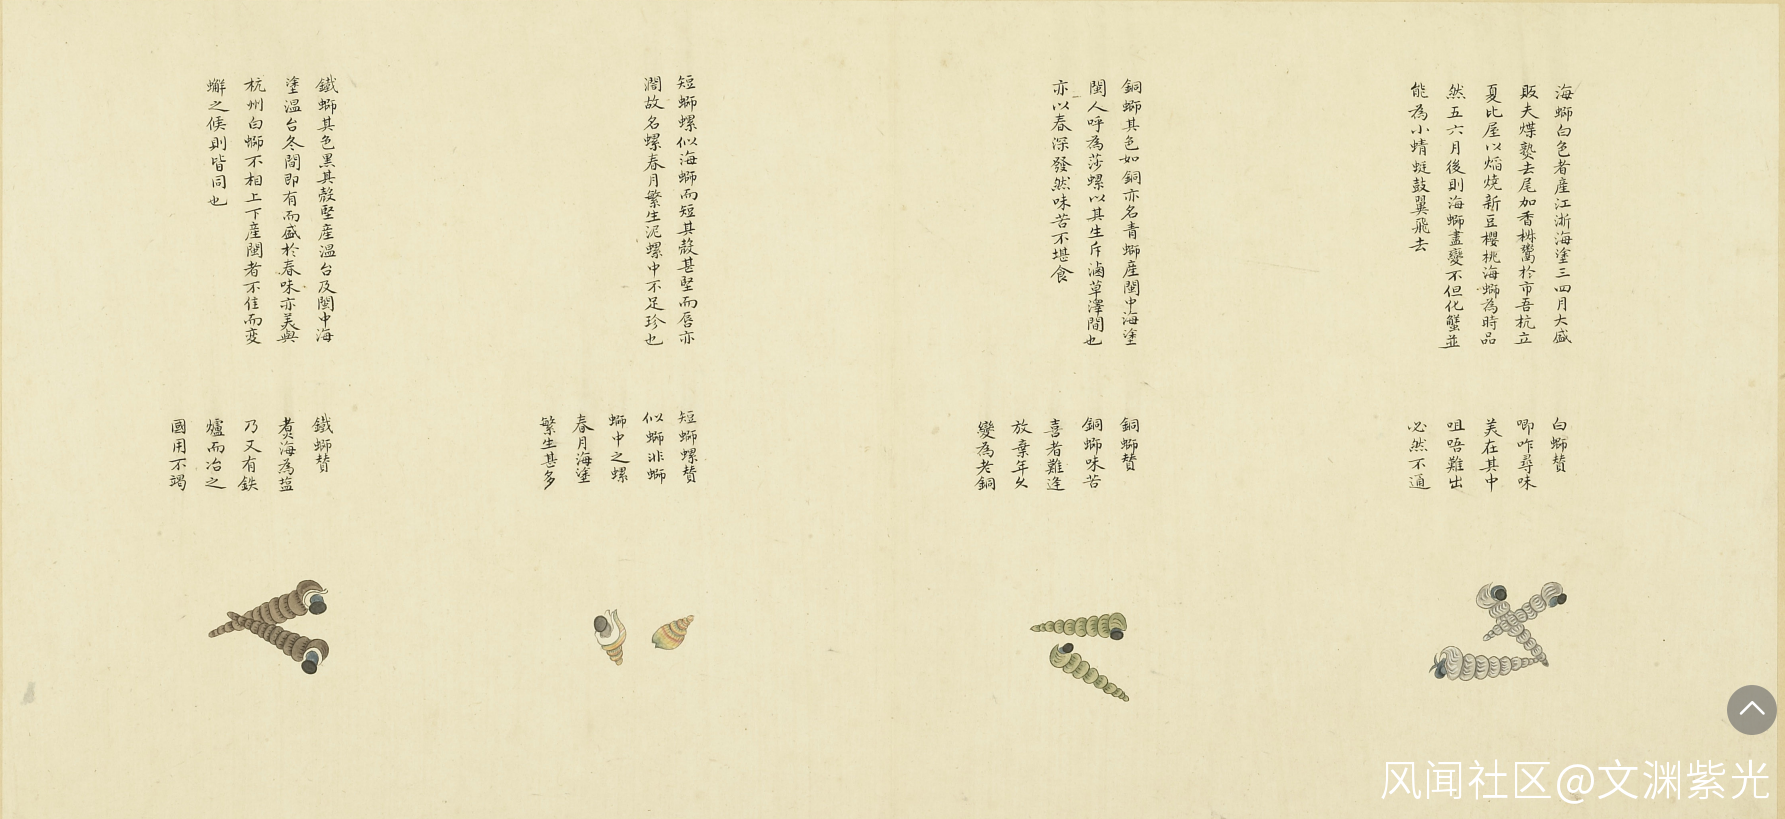 海螄白色者產江浙海塗三四月大盛
販夫煠熟去尾加香椒鬻於市吾杭立
夏比屋以焰燒新豆櫻桃海螄為時品
然五六月後則海螄盡變不但化蟹並
能為小蜻蜓鼓翼飛去
白螄贊
唧咋尋味
美在其中
咀唔難出
必然不通
銅螄其色如銅亦名青螄產閩中海塗
閩人呼為莎螺以其生斥滷草澤間也
亦以春深發然味苦不堪食
銅螄贊
銅螄味苦
喜者難逢
放棄年久
變為老銅
短螄螺似海螄而短其殼甚堅而唇亦
濶故名螺春月繁生泥螺中不足珍也
短螄螺贊
似螄非螄
螄中之螺
春月海塗
繁生甚多
鐵螄其色黑其殼堅產溫台及閩中海
塗溫台冬間即有而盛於春味亦美與
杭州白螄不相上下產閩者不佳而变
蠏之候則皆同也
鐵螄贊
煮海為塩
乃又有鉄
爐而冶之
國用不竭
风闻社区@文渊紫光